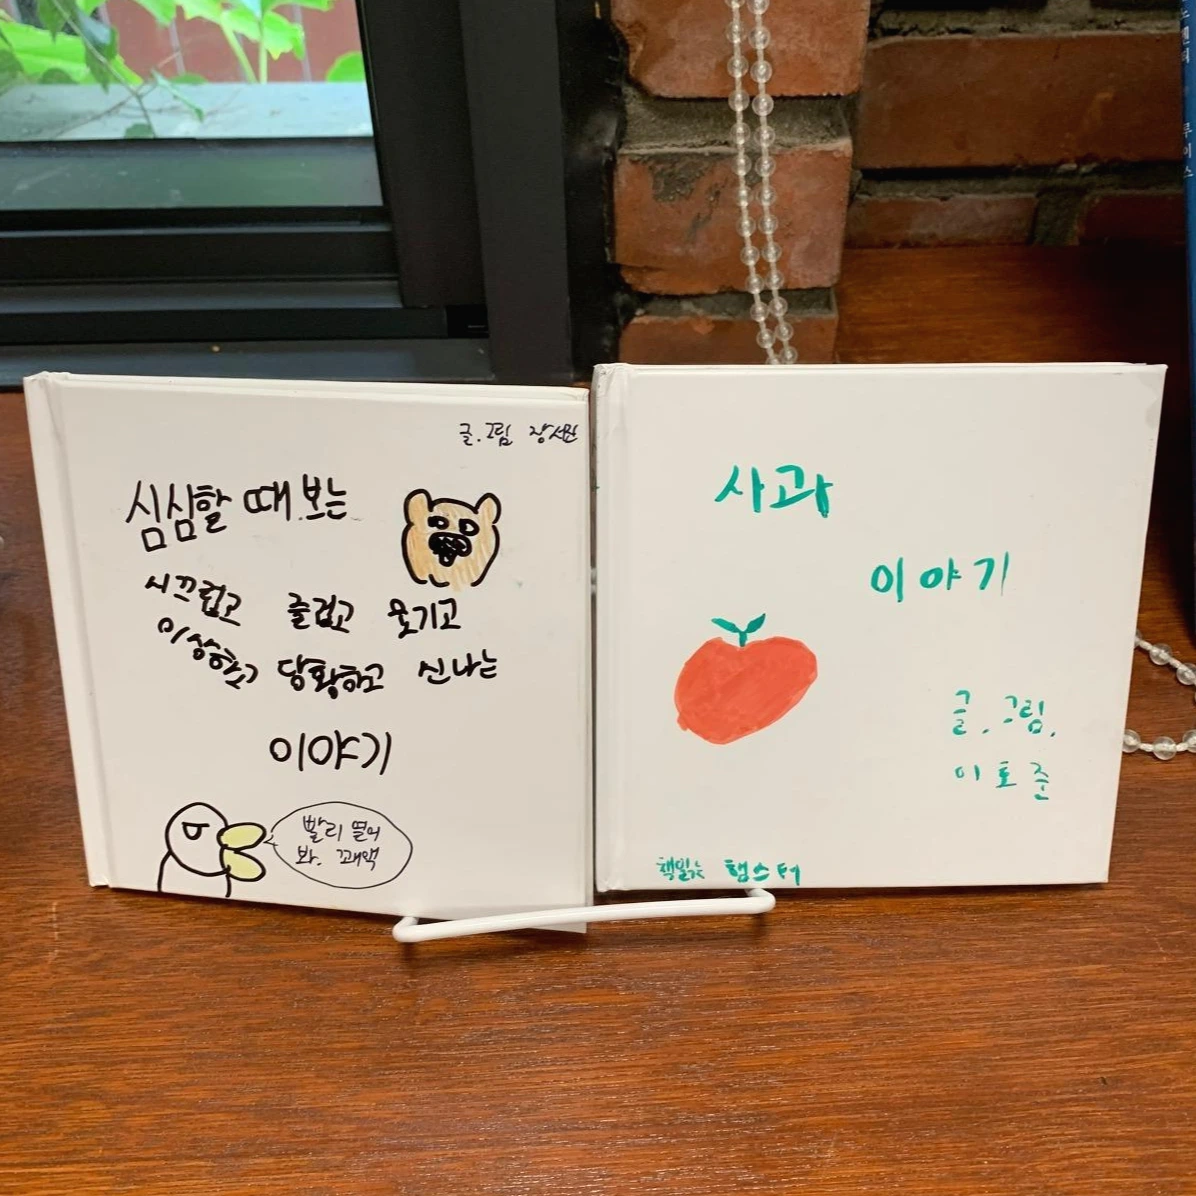 글.그림 장서완
심심할 때 보는
시끄럽고 즐겁고 웃기고
이상하고 당황하고 신나는
이야기
빨리 열어
봐. 꽤액
사과
이야기
글.그림.
이토준
책읽는 햄스터
루이스